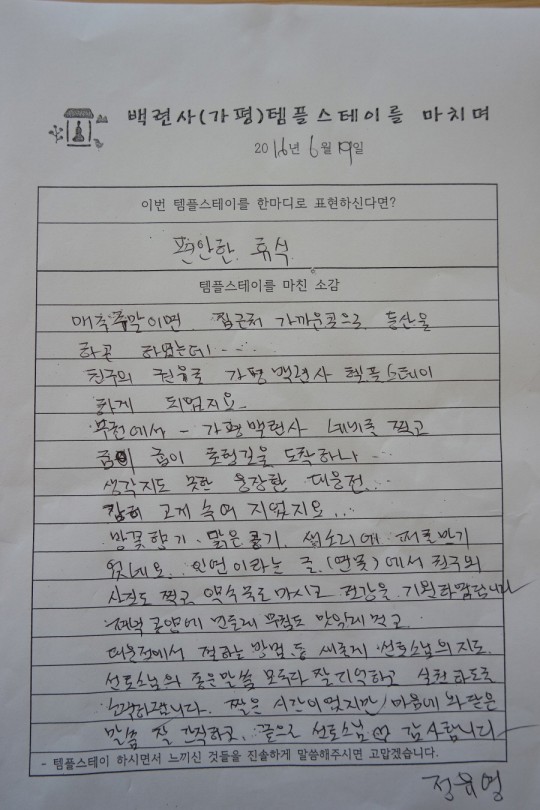 백련사(가평)템플스테이를 마치며
2016년 6월 19일
이번 템플스테이를 한마디로 표현하신다면?
편안한 휴식
템플스테이를 마친 소감
매주 주말이면 집근처 가까운곳으로 등산을
하곤 하였는데....
친구의 권유로 가평 백련사 템플스테이
하게 되었지요.
부천에서 - 가평백련사 네비를 찍고
굽이 굽이 초행길을 도착하니
생각지도 못한 웅장한 대웅전...
고개 숙여 지었지요...
밤꽃향기. 맑은공기. 새소리에
었네요. 인연이라는 곳.(연못)에서 친구와
사진도 찍고 약수물로 마시고 건강을 기원하였답니다
민들레 무침도 맛있게 먹고
대웅전에서 절하는 방법 등 새롭게 선효스님의 지도
선효스님의 좋은말씀 모두다 잘 기억하고 실천 하도록
노력하겠습니다. 짧은 시간이었지만 마음에 와 닿은
말씀 잘 간직하고, 끝으로 선효스님♡ 감사합니다
- 템플스테이 하시면서 느끼신 것들을 진솔하게 말씀해주시면 고맙겠습니다.
정유영